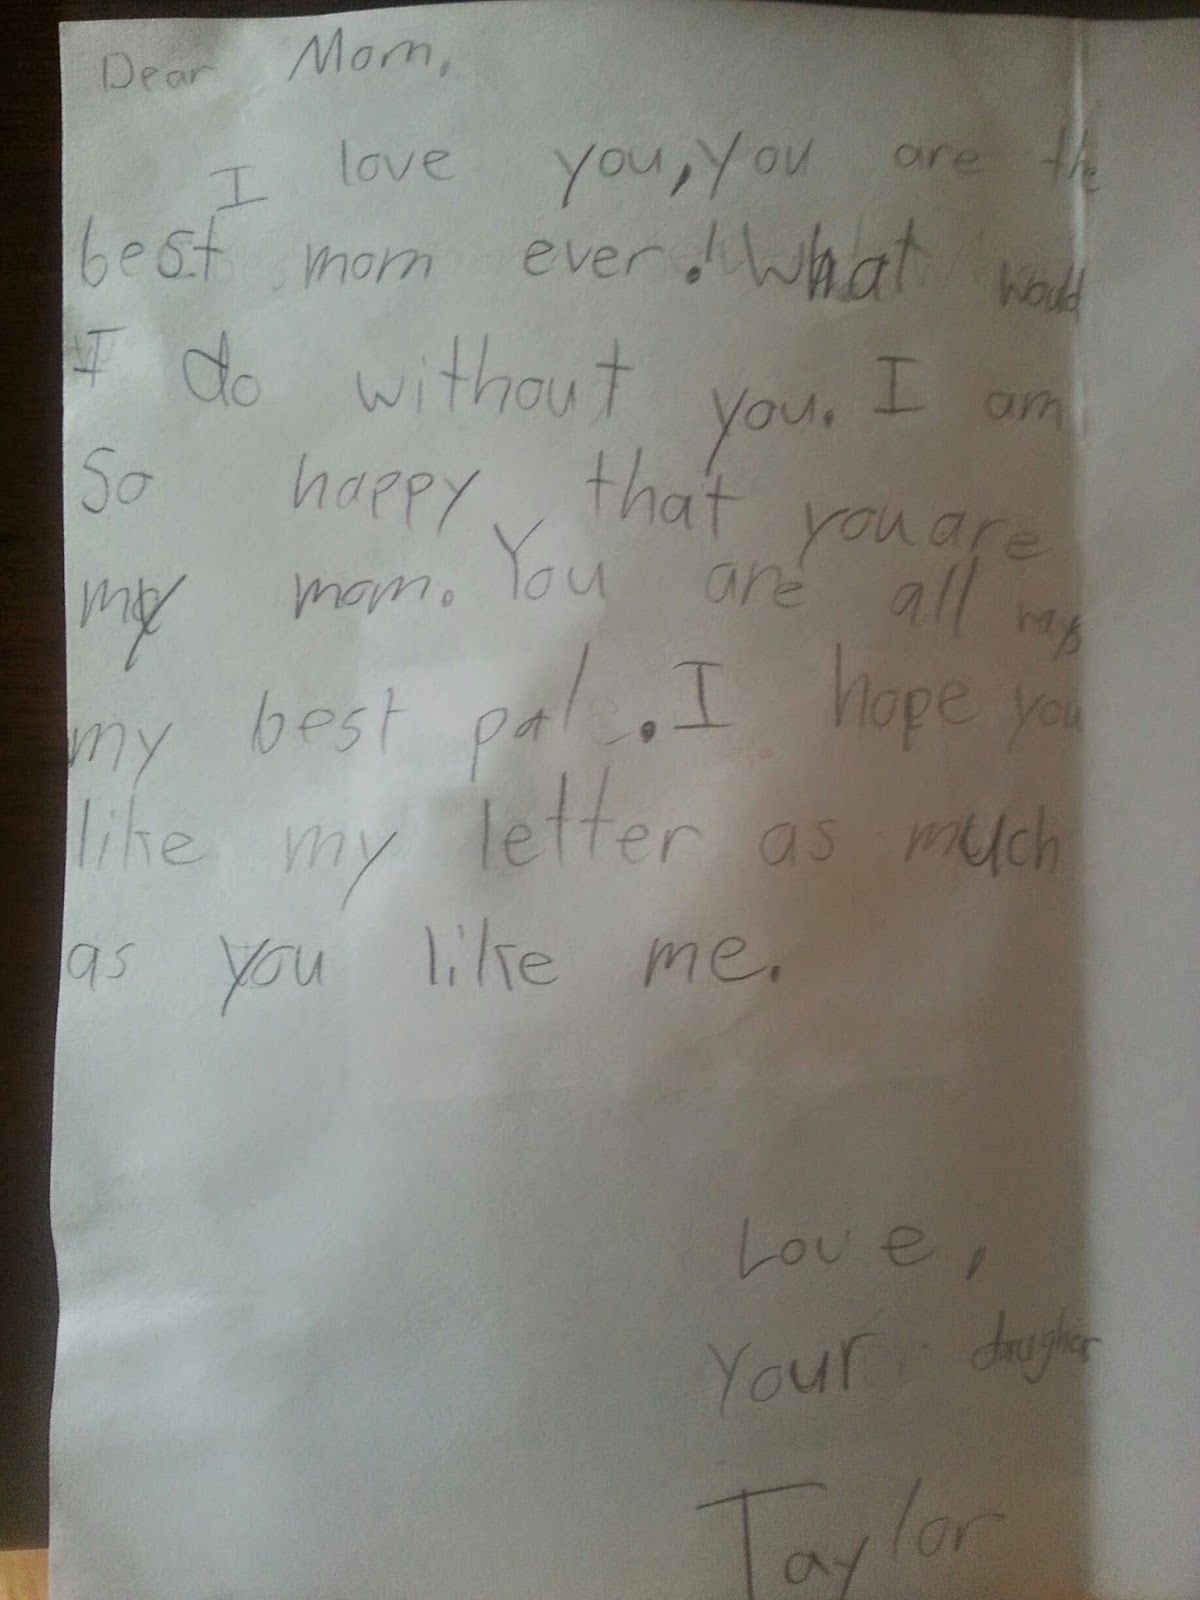 Dear Mom,
I love you, you are the
best mom ever! What would
I do without you. I am
So happy that you are
my mom. You are all ways
my best pal. I hope you
like my letter as much
as you like me.
Love,
Your daughter
Taylor